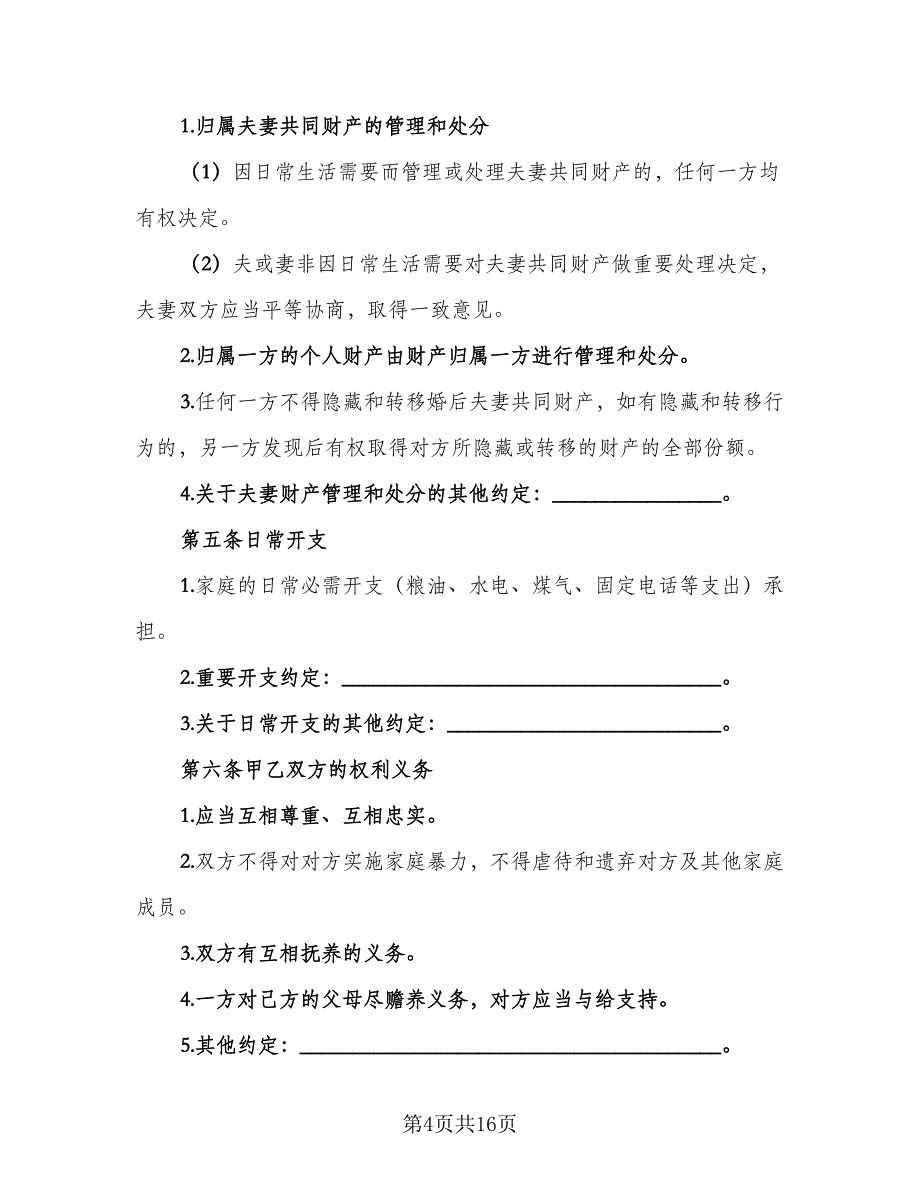 1.归属夫妻共同财产的管理和处分
（1）因日常生活需要而管理或处理夫妻共同财产的，任何一方均
有权决定。
（2）夫或妻非因日常生活需要对夫妻共同财产做重要处理决定，
夫妻双方应当平等协商，取得一致意见。
2.归属一方的个人财产由财产归属一方进行管理和处分。
3.任何一方不得隐藏和转移婚后夫妻共同财产，如有隐藏和转移行
为的，另一方发现后有权取得对方所隐藏或转移的财产的全部份额。
4.关于夫妻财产管理和处分的其他约定：________________。
第五条日常开支
1.家庭的日常必需开支（粮油、水电、煤气、固定电话等支出）承
担。
2.重要开支约定：____________________________________。
3.关于日常开支的其他约定：__________________________。
第六条甲乙双方的权利义务
1.应当互相尊重、互相忠实。
2.双方不得对对方实施家庭暴力，不得虐待和遗弃对方及其他家庭
成员。
3.双方有互相抚养的义务。
4.一方对己方的父母尽赡养义务，对方应当与给支持。
5.其他约定：________________________________________。
第4页共16页